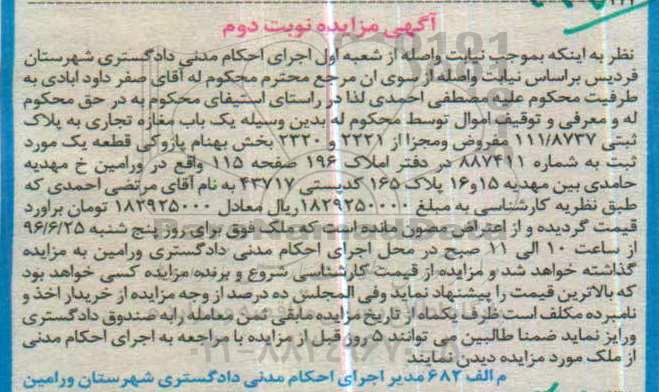 آگهی مزایده نوبت دوم
نظر به اینکه بموجب نیابت واصله از شعبه اول اجرای احکام مدنی دادگستری شهرستان
فردیس براساس نیابت واصله از سوی ان مرجع محترم محکوم له آقای صفر داود ابادی به
طرفیت محکوم علیه مصطفی احمدی لذا در راستای استیفای محکوم به در حق محکوم
له و معرفی و توقیف اموال توسط محکوم له بدین وسیله یک باب مغازه تجاری به پلاک
ثبتی ۱۱۱/۸۷۳۷ مفروض ومجزا از ۲۲۲۱ و ۲۳۲۰ بخش بهنام پازوکی قطعه یک مورد
ثبت به شماره ۸۸۷۴۱۱ در دفتر املاک ۱۹۶ صفحه ۱۱۵ واقع در ورامین خ مهدیه
حامدی بین مهدیه ۱۵و۱۶ پلاک ۱۶۵ کدپستی ۴۳۷۱۷ به نام آقای مرتضی احمدی که
طبق نظریه کارشناسی به مبلغ ۱۸۲۹۲۵۰۰۰۰ریال معادل ۱۸۲۹۲۵۰۰۰ تومان براورد
قیمت گردیده و از اعتراض مصون مانده است که ملک فوق برای روز پنج شنبه ۹۶/۶/۲۵
از ساعت ۱۰ الی ۱۱ صبح در محل اجرای احکام مدنی دادگستری ورامین به مزایده
گذاشته خواهد شد و مزایده از قیمت کارشناسی شروع و برنده مزایده کسی خواهد بود
که بالاترین قیمت را پیشنهاد نماید وفی المجلس ده درصد از وجه مزایده از خریدار اخذ و
نامبرده مکلف است ظرف یکماه از تاریخ مزایده مابقی ثمن معامله رابه صندوق دادگستری
ورایز نماید ضمنا طالبین می توانند ۵ روز قبل از مزایده با مراجعه به اجرای احکام مدنی
از ملک مورد مزایده دیدن نمایند
م الف ۶۸۲ مدیر اجرای احکام مدنی دادگستری شهرستان ورامین